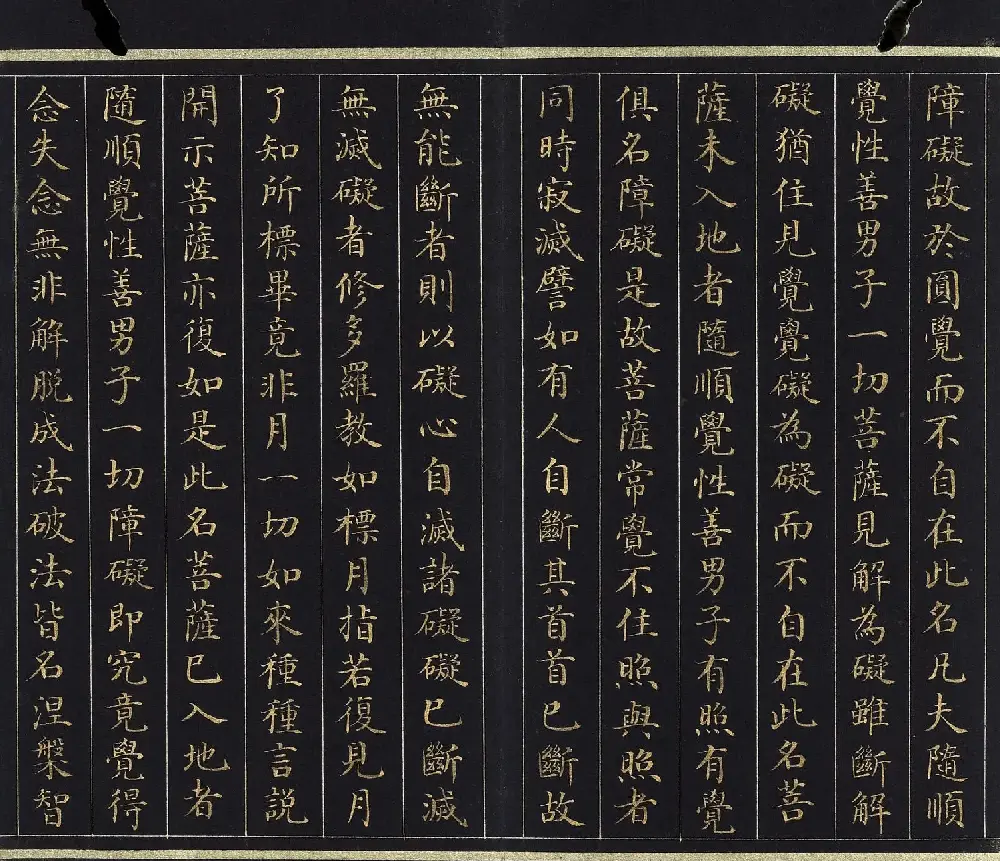 障礙故於圓覺而不自在此名凡夫隨順
覺性善男子一切菩薩見解為礙雖斷解
礙猶住見覺覺礙為礙而不自在此名菩
薩未入地者隨順覺性善男子有照有覺
俱名障礙是故菩薩常覺不住照與照者
同時寂滅譬如有人自斷其首首已斷故
無能斷者則以礙心自滅諸礙礙已斷滅
無滅礙者修多羅教如標月指若復見月
了知所標畢竟非月一切如來種種言說
開示菩薩亦復如是此名菩薩已入地者
隨順覺性善男子一切障礙即究竟覺得
念失念無非解脫成法破法皆名涅槃智